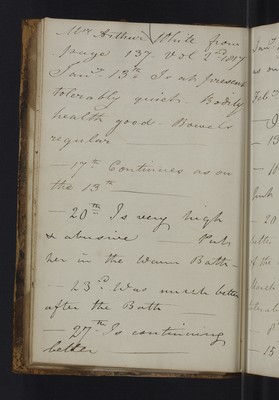 Mrs Arthur White from
page 137. Vol 2d 1817
Jany. 13th Is at present
tolerably quiet. Bodily
health good - Bowels
regular
- 17th Continues as on
the 13th
- 20th Is very high
& abusive - Put
her in the Warm Bath -
- 23d Was much better
after the Bath
- 27th Is continuing
better